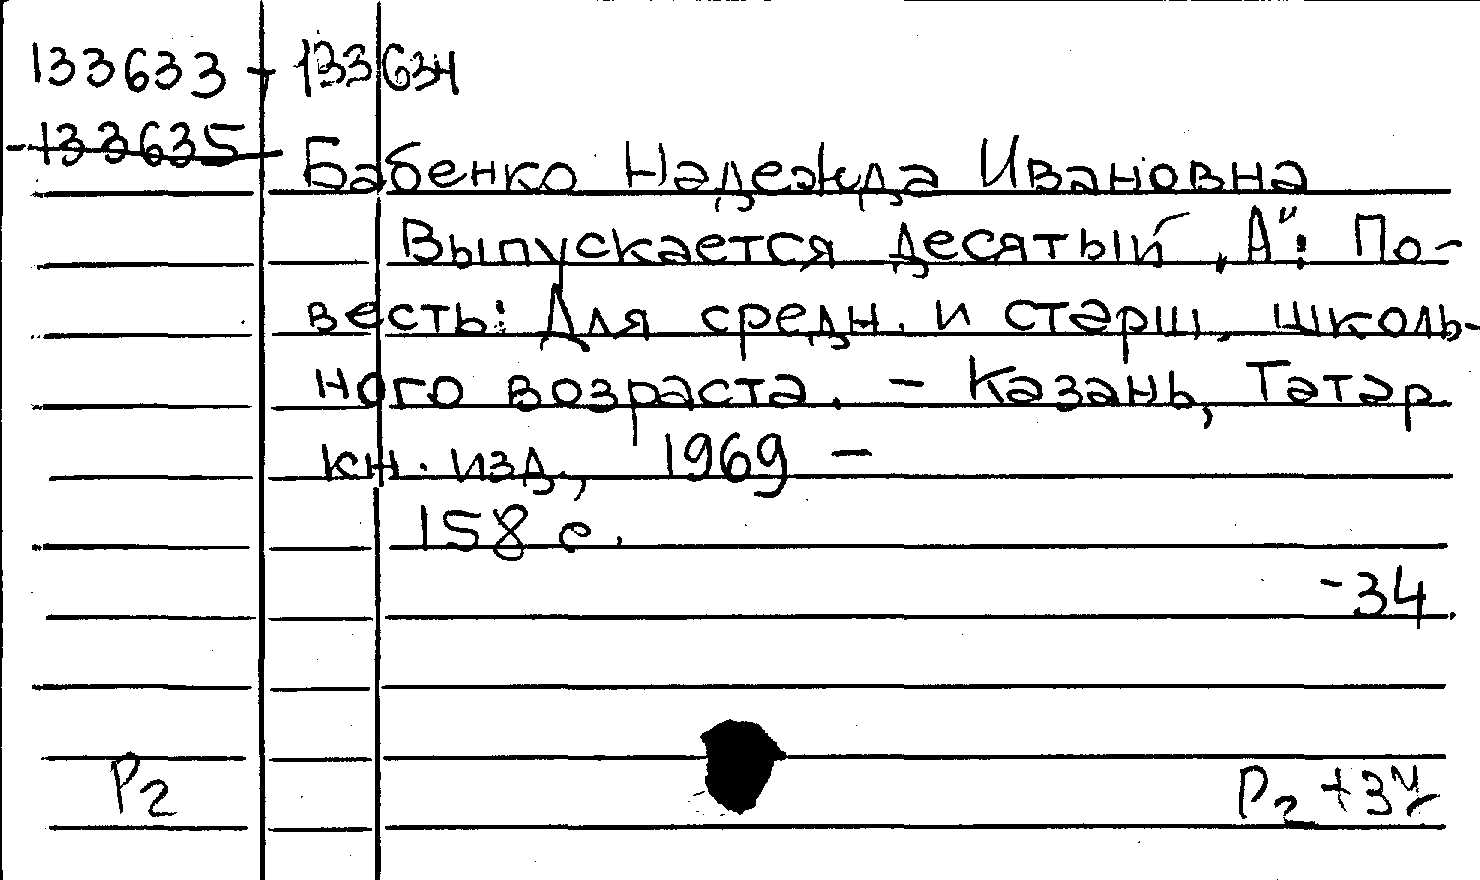 133633 + 133634
133635
Бабенко Надежда Ивановна
Выпускается десятый „А": По-
весть: Для средн. и старш. школь-
ного возраста. – Казань, Татар
кн. изд., 1969 –
158 с.
-34.
Р2
Р2 +34